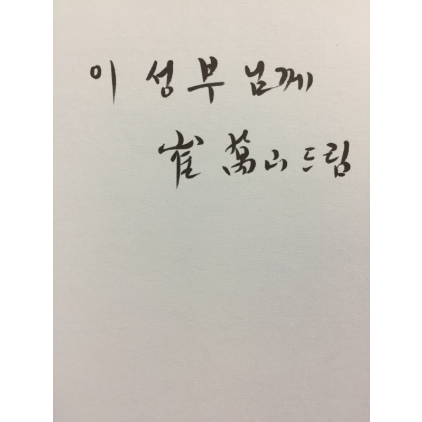 이 성부님께
崔 萬山 드림